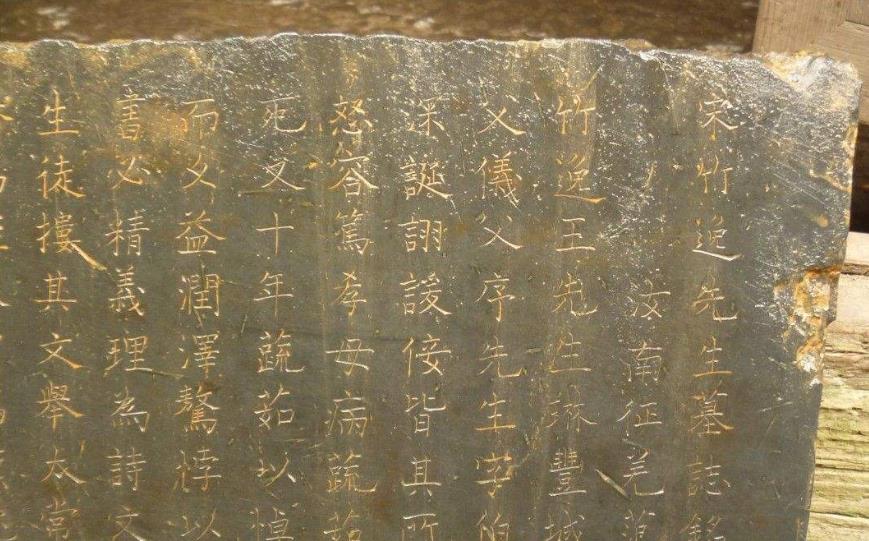 宋竹逸先生墓誌銘
汝南征羌
竹逸王先生琳豐城
父儀父序先生字伯
深誕詡諼倿皆其所
怒容篤孝母病蔬茹
死又十年蔬茹以悼
而文益潤澤驁悖以
書必精義理為詩文
生徒摟其文舉太常